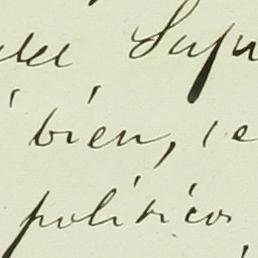 del Sup
bien, se
políticos